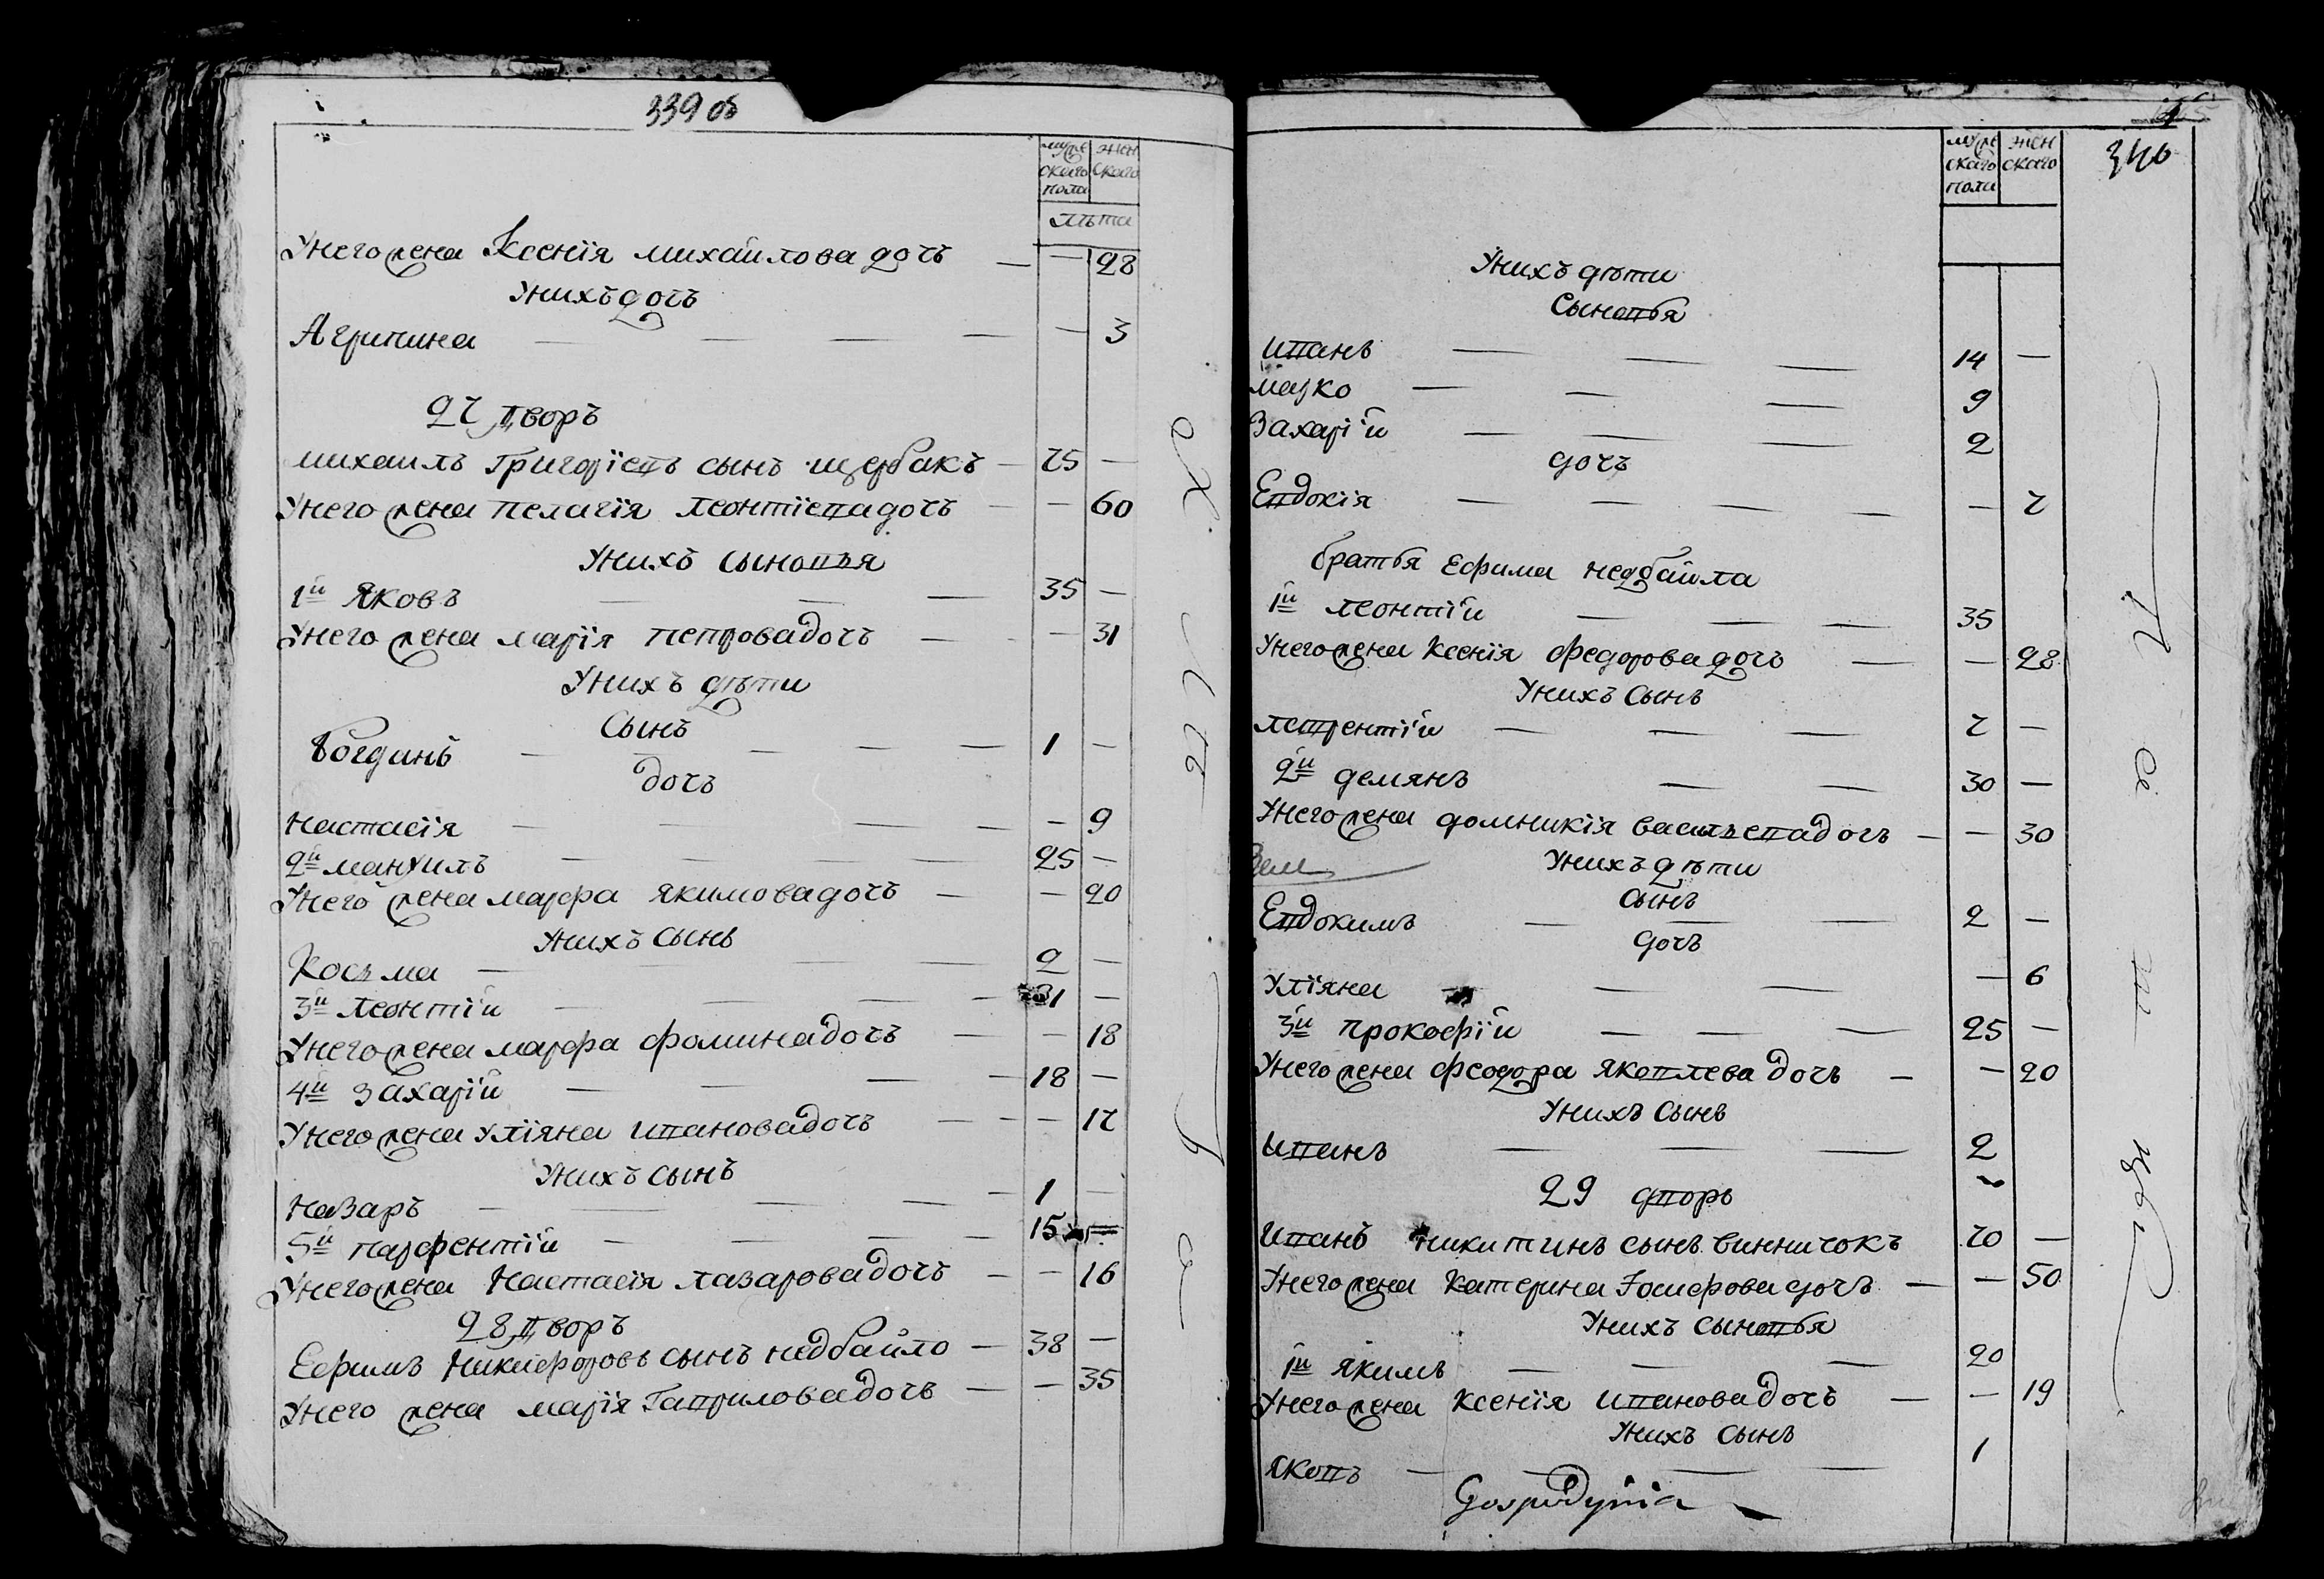 339 об
мужескаго пола женскаго
лѣта
У него жена Ксенія михайлова дочь — — 28
У нихъ дочь
Агрипина — — — — — 3
27 дворъ
михаилъ Григорієвъ сынъ щербакъ — 75 —
У него жена пелагія леонтієва дочь — — 60
У нихъ сыновья
1й Яковъ — — — 35 —
У него жена марія петрова дочь — — 31
У нихъ дѣти
Сынъ
Богданъ — — — — — 1 —
дочь
настасія — — — — — 9
2й мануилъ — — — — 25 —
У него жена марфа якимова дочь — — 20
У нихъ сынъ
Косъма — — — — 2 —
3й леонтій — — — — 21 —
У него жена марфа фомина дочь — — 18
4й захарій — — — — 18 —
У него жена уліяна иванова дочь — — — 17
У нихъ сынъ
назаръ — — — — — 1 —
5й парфентій — — — — 15 —
У него жена Настасія лазарова дочь — — 16
28 дворъ
Ефимъ Никифоровъ сынъ недбайло — 38 —
У него жена марія Гаврилова дочь — — 35
340
мужескаго пола женскаго
У нихъ дѣти
Сыновья
иванъ — — — 14 —
марко — — — 9
Захарій — — — 2
дочь
Евдокія — — — — — 7
братья Ефима недбайла
1й леонтій — — — 35
У него жена Ксенія федорова дочь — — 28
У нихъ Сынъ
лаврентій — — — 7 —
2й демянъ — — 30 —
У него жена домникія васильева дочь — — 30
У нихъ дѣти
Сынъ
Евдокимъ — — — 2 —
дочь
Уліяна — — — 6
3й прокофій — — — 25 —
У него жена феодора яковлева дочь — — 20
У нихъ сынъ
иванъ — — — 2
29 дворъ
Иванъ никитинъ сынъ винничокъ 70 —
У него жена катерина Іосифова дочь — — 50
У нихъ сыновья
1й якимъ — — — 20
У него жена ксенія иванова дочь — — 19
У нихъ Сынъ
яковъ — — — — 1
Gospodynia